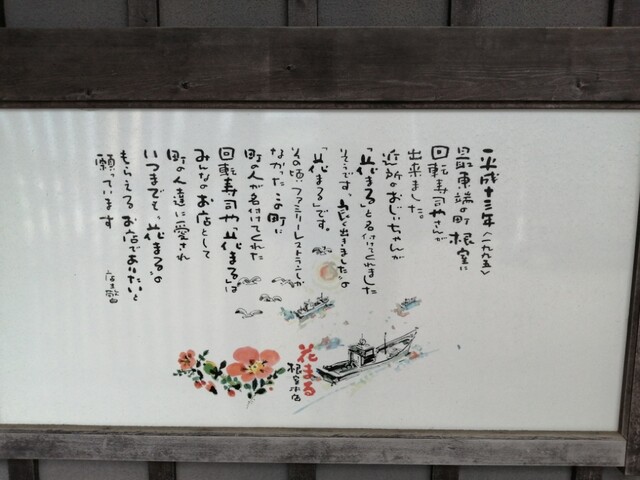 平成十三年〈一九九五〉
最東端の町 根室に
回転寿司やさんが
出来ました。
近所のおじいちゃんが
「花まる」と名付けてくれました
そうです、"良く出きました"の
「花まる」です。
その頃ファミリーレストランしか
なかったこの町に
町の人が名付けてくれた
回転寿司や"花まる"は
みんなのお店として
町の人達に愛され
いつまでも"花まる"の
もらえるお店でありたいと
願っています
店主
花まる
根室本店